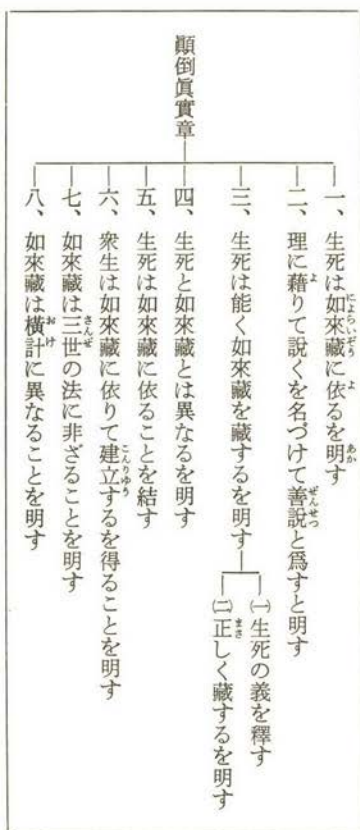 顚倒眞實章
一、生死は如來藏に依るを明す
二、理に藉りて說くを名づけて善說と爲すと明す
三、生死は能く如來藏を藏するを明す
㈠生死の義を釋す
㈡正しく藏するを明す
四、生死と如來藏とは異なるを明す
五、生死は如來藏に依ることを結す
六、衆生は如來藏に依りて建立するを得ることを明す
七、如來藏は三世の法に非ざることを明す
八、如來藏は橫計に異なることを明す